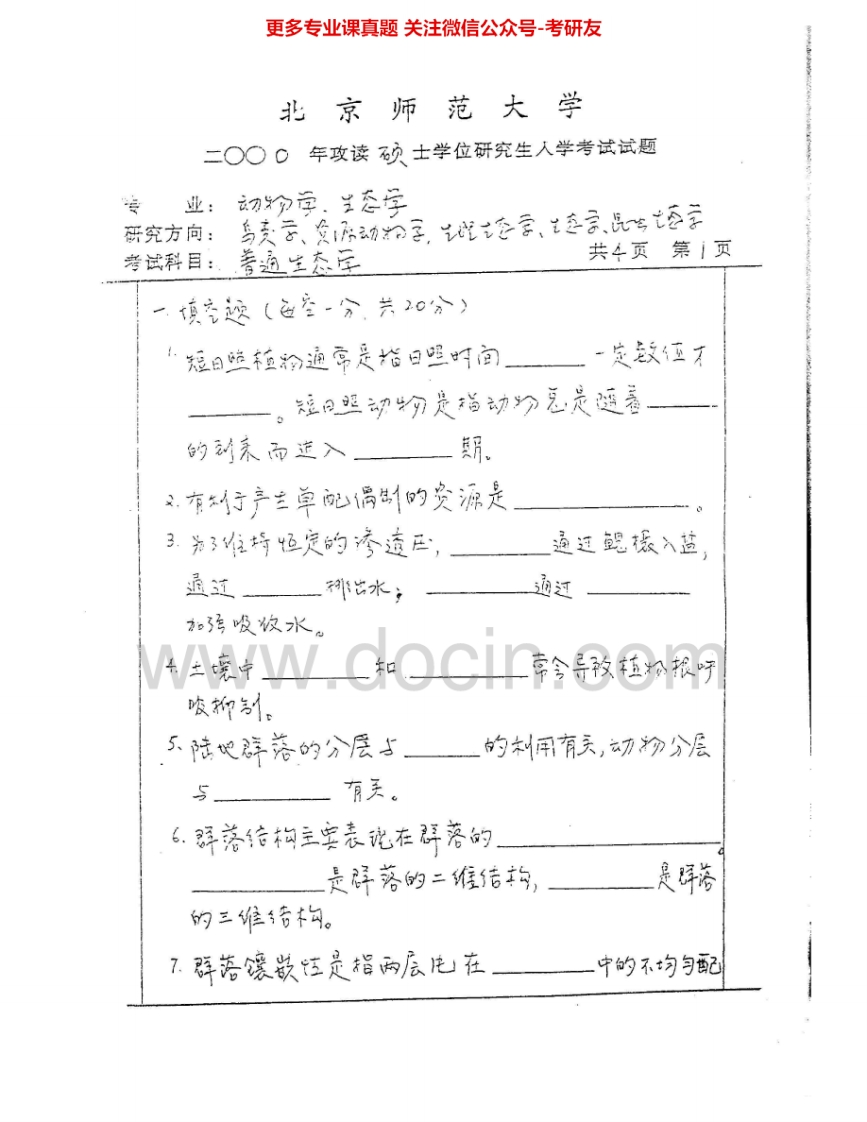 更多专业课真题 关注微信公众号-考研友
北 京 师 范 大 学
二〇〇〇 年攻读 硕 士学位研究生入学考试试题
专 业: 动物学、生态学
研究方向: 鸟类学、资源动物学、生理生态学、生态学、昆虫生态学
考试科目: 普通生态学 共4页 第1页
一、填空题(每空一分,共20分)
1. 短日照植物通常是指日照时间______一定数值才
______。短日照动物是指动物总是随着______
的到来而进入______期。
2. 有利于产生单配偶制的资源是______。
3. 为了维持恒定的渗透压,______通过鳃摄入盐,
通过______排出水;______通过______
加强吸收水。
4. 土壤中______和______常会导致植物根呼
吸抑制。
5. 陆地群落的分层与______的利用有关,动物分层
与______有关。
6. 群落结构主要表现在群落的______。
______是群落的二维结构,______是群落
的三维结构。
7. 群落镶嵌性是指两层片在______中的不均匀配
www.docin.com